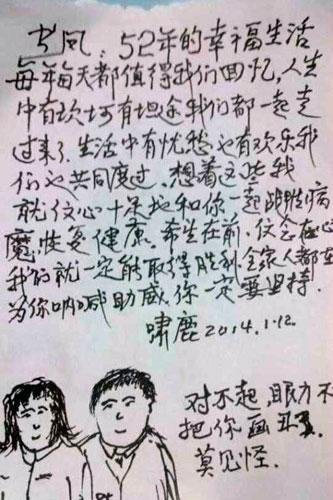 书凤：52年的幸福生活
每年每天都值得我们回忆，人生
中有坎坷有坦途我们都一起走
过来了。生活中有忧愁也有欢乐我
们也共同度过。想着这些我
就仅心十足地和你一起战胜病
魔，恢复健康。希生在前，仅念在心
我的就一定能取得胜利全家人都在
为你呐喊助威，你一定要坚持。
啸鹿 2014.1.12.
对不起，眼力不
把你画丑了。
莫见怪.